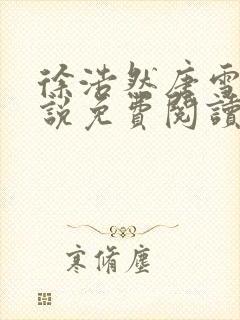 徐浩然唐雪
說免費閱讀
寒脩塵